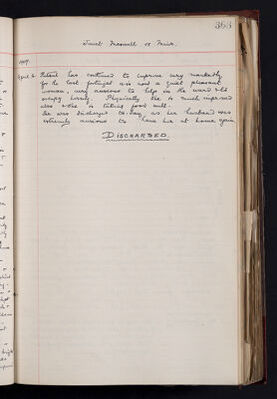 363
Janet
or
1909.
April 2. Patient has continued to improve very markedly
for the last fortnight & is now a quiet pleasant
woman, very anxious to help in the ward &
occupy herself. Physically she is much improved
also & she is taking food well.
She was discharged to-day as her husband was
extremely anxious to have her at home again.
DISCHARGED.